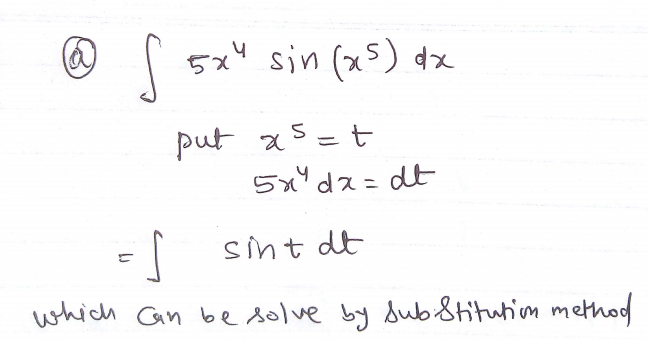 ⓐ ∫ 5x⁴ sin (x⁵) dx
put x⁵ = t
5x⁴ dx = dt
= ∫ sint dt
which can be solve by substitution method